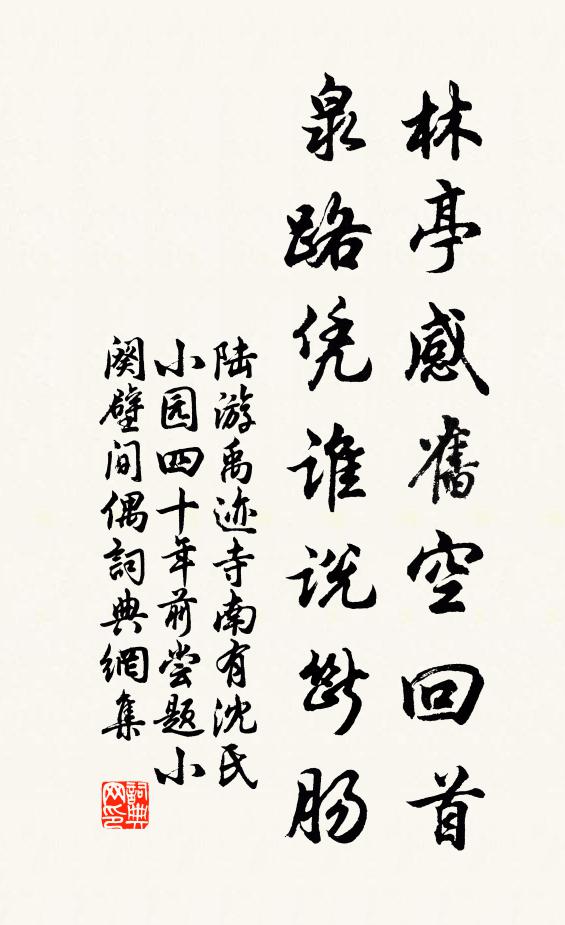 林亭感舊空回首
泉路凭谁说断肠
陆游禹迹寺南有沈氏
小园四十年前尝题小
阕壁间偶詞典網集
詞典网印